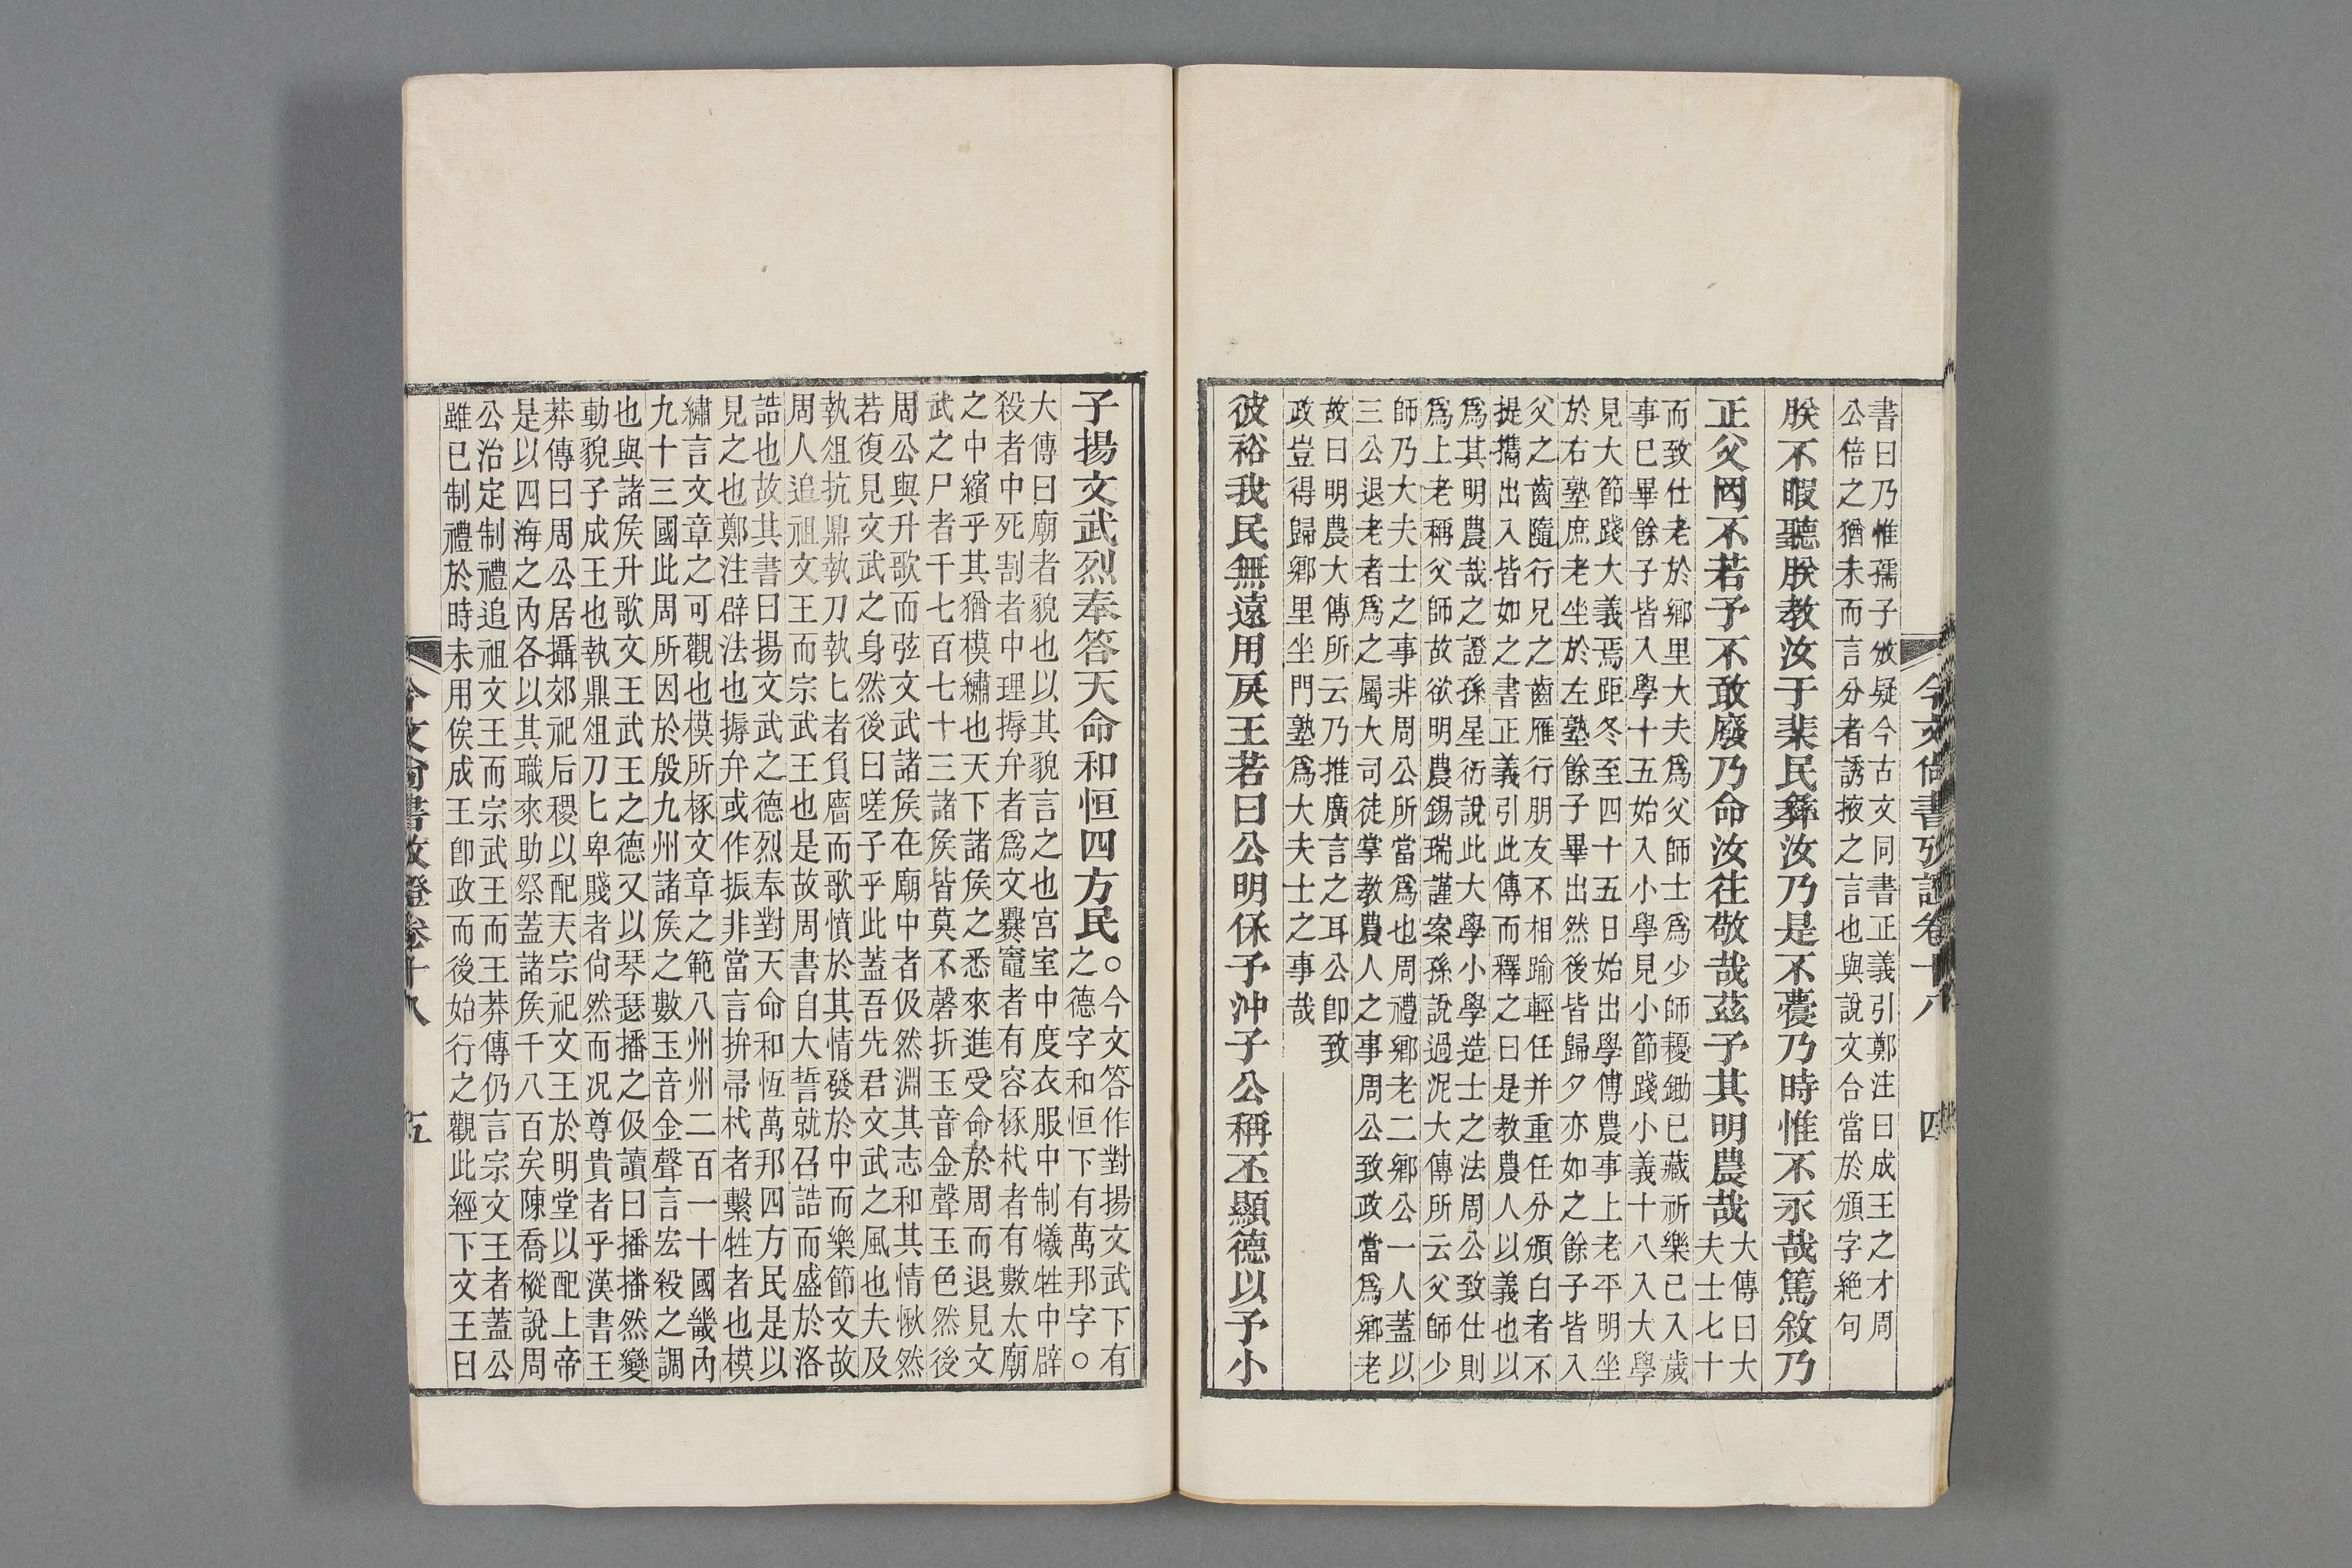 書曰乃惟孺子攽疑今古文同書正義引鄭注曰成王之才周
公倍之猶未而言分者誘掖之言也與說文合當於頒字絕句
朕不暇聽朕教汝于棐民彝汝乃是不蘉乃時惟不永哉篤敘乃
正父罔不若予不敢廢乃命汝往敬哉茲予其明農哉
大傳曰大
夫士七十
而致仕老於鄉里大夫爲父師士爲少師耰鋤已藏祈樂已入歲
事已畢餘子皆入學十五始入小學見小節踐小義十八入大學
見大節踐大義焉距冬至四十五日始出學傅農事上老平明坐
於右塾庶老坐於左塾餘子畢出然後皆歸夕亦如之餘子皆入
父之齒隨行兄之齒雁行朋友不相踰輕任并重任分頒白者不
提攜出入皆如之書正義引此傳而釋之曰是教農人以義也以
爲其明農哉之證孫星衍說此大學小學造士之法周公致仕則
爲上老稱父師故欲明農錫瑞謹案孫說過泥大傳所云父師少
師乃大夫士之事非周公所當爲也周禮鄉老二鄉公一人蓋以
三公退老者爲之屬大司徒掌教農人之事周公致政當爲鄉老
故曰明農大傳所云乃推廣言之耳公卽致
政豈得歸鄉里坐門塾爲大夫士之事哉
彼裕我民無遠用戾王若曰公明保予沖子公稱丕顯德以予小
今文尚書攷證卷十八
四
子揚文武烈奉答天命和恒四方民
○今文答作對揚文武下有
之德字和恒下有萬邦字○
大傳曰廟者貌也以其貌言之也宮室中度衣服中制犧牲中辟
殺者中死割者中理搙弁者爲文爨竈者有容椓杙者有數太廟
之中繽乎其猶模繡也天下諸侯之悉來進受命於周而退見文
武之尸者千七百七十三諸侯皆莫不磬折玉音金聲玉色然後
周公與升歌而弦文武諸侯在廟中者伋然淵其志和其情愀然
若復見文武之身然後曰嗟子乎此蓋吾先君文武之風也夫及
執俎抗鼎執刀執匕者負廧而歌憤於其情發於中而樂節文故
周人追祖文王而宗武王也是故周書自大誓就召誥而盛於洛
誥也故其書曰揚文武之德烈奉對天命和恆萬邦四方民是以
見之也鄭注辟法也搙弁或作振非當言拚帚杙者繫牲者也模
繡言文章之可觀也模所椓文章之範八州州二百一十國畿內
九十三國此周所因於殷九州諸侯之數玉音金聲言宏殺之調
也與諸侯升歌文王武王之德又以琴瑟播之伋讀曰播播然變
動貌子成王也執鼎俎刀匕卑賤者尙然而況尊貴者乎漢書王
莽傳曰周公居攝郊祀后稷以配天宗祀文王於明堂以配上帝
是以四海之內各以其職來助祭蓋諸侯千八百矣陳喬樅說周
公治定制禮追祖文王而宗武王而王莽傳仍言宗文王者蓋公
雖已制禮於時未用俟成王卽政而後始行之觀此經下文王曰
今文尚書攷證卷十八
五